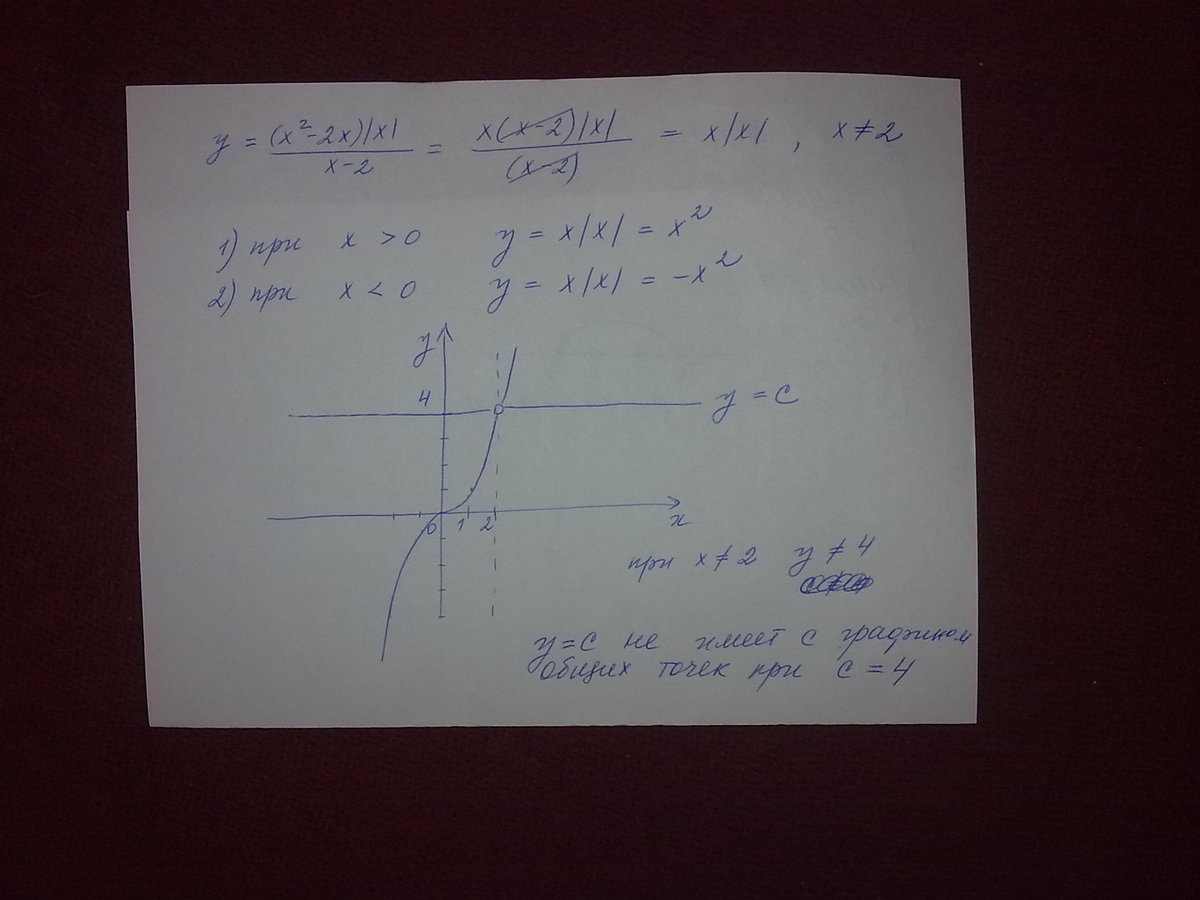 y = (x²-2x)|x| / x-2 = x(x-2)|x| / (x-2) = x|x| , x≠2
1) при x > 0 y = x|x| = x²
2) при x < 0 y = x|x| = -x²
y
4
y = c
0 1 2
x
при x≠2 y≠4
y=c не имеет с графиком
общих точек при c = 4